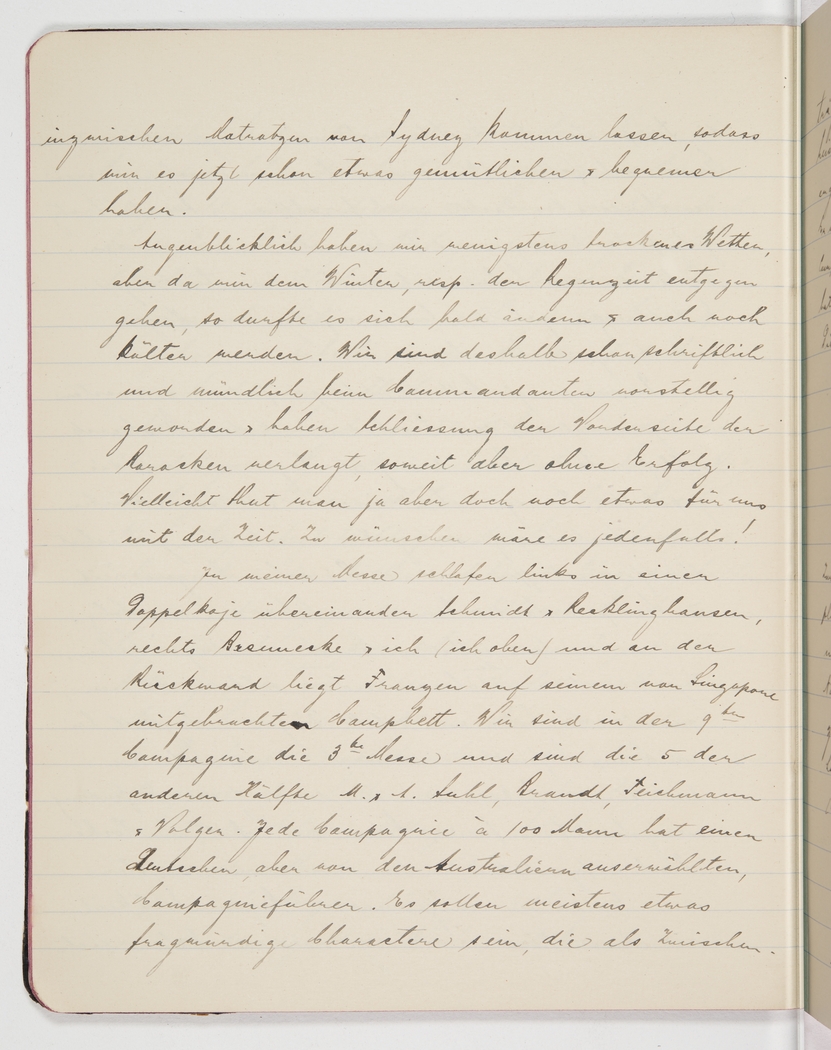 inzwischen Matratzen von Sydney kommen lassen, sodass
wir es jetzt schon etwas gemütlicher & bequemer
haben.
Augenblicklich haben wir wenigstens trockenes Wetter,
aber da wir dem Winter, resp. der Regenzeit entgegen
gehen, so dürfte es sich bald ändern & auch noch
kälter werden. Wir sind deshalb schon schriftlich
und mündlich beim Commandanten vorstellig
geworden & haben Schliessung der Vorderseite der
Baracken verlangt, soweit aber ohne Erfolg.
Vielleicht thut man ja aber doch noch etwas für uns
mit der Zeit. Zu wünschen wäre es jedenfalls!
In meiner Messe schlafen links in einer
Doppelkoje übereinander Schmidt & Recklinghausen,
rechts & ich (ich oben) und an der
Rückwand liegt Franzen auf seinem von Singapore
mitgebrachten Campbett. Wir sind in der 9ten
Compagnie die 3te Messe und sind die 5 der
anderen Hälfte M. & A. Suhl, Brandt, Teichmann
& Volger. Jede Compagnie à 100 Mann hat einen
Deutschen, aber von den Australiern auserwählten,
Compagnieführer. Es sollen meistens etwas
fragwürdige Charactere sein, die als Zwischen-